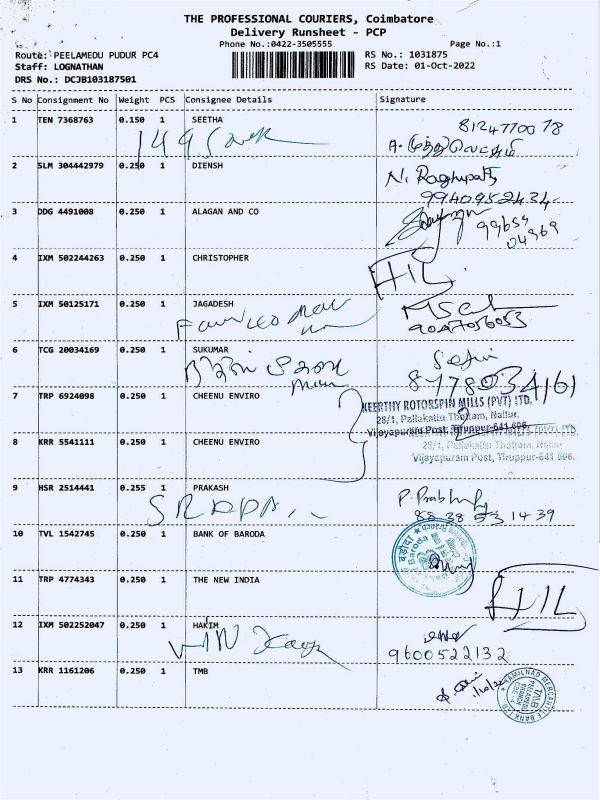 THE PROFESSIONAL COURIERS, Coimbatore
Delivery Runsheet - PCP
Phone No.:0422-3505555
Page No.:1
Route: PEELAMEDU PUDUR PC4
RS No.: 1031875
Staff: LOGNATHAN
RS Date: 01-Oct-2022
DRS No.: DCJB103187501
S No Consignment No Weight PCS Consignee Details Signature
1 TEN 7368763 0.150 1 SEETHA
8124770078
2 SLM 304442979 0.250 1 DIENSH
N. Raghupathy
9940952434
3 DDG 4491008 0.250 1 ALAGAN AND CO
99659
04969
4 IXM 502244263 0.250 1 CHRISTOPHER
5 IXM 50125171 0.250 1 JAGADESH
9047056053
6 TCG 20034169 0.250 1 SUKUMAR
7 TRP 6924098 0.250 1 CHEENU ENVIRO
KEERTHY ROTORSPIN MILLS (PVT) LTD.
28/1, Pallakattu Thottam, Nallur,
Vijayapuram Post, Tiruppur-641 606.
8 KRR 5541111 0.250 1 CHEENU ENVIRO
28/1, Pallakattu Thottam, Nallur
Vijayapuram Post, Tiruppur-641 606.
9 HSR 2514441 0.255 1 PRAKASH
P. Prabhu
88 38 53 1439
10 TVL 1542745 0.250 1 BANK OF BARODA
11 TRP 4774343 0.250 1 THE NEW INDIA
12 IXM 502252047 0.250 1 HAKIM
9600522132
13 KRR 1161206 0.250 1 TMB
TAMILNAD MERCANTILE BANK LTD
TMB